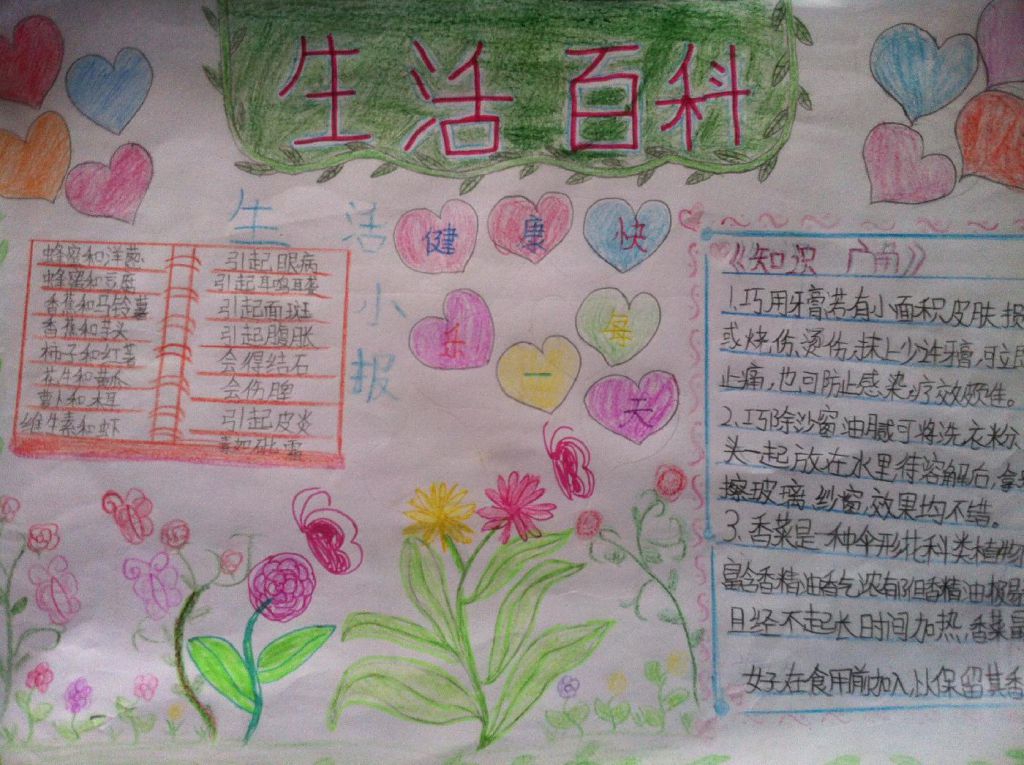 生活百科
生活小报
健康快
乐每
一天
蜂蜜和洋葱 引起眼病
蜂蜜和豆腐 引起耳鸣耳聋
香蕉和马铃薯 引起面斑
香蕉和芋头 引起腹胀
柿子和红薯 会得结石
花生和黄瓜 会伤脾
萝卜和木耳 引起皮炎
维生素和虾
《知识 广南》
1.巧用牙膏若有小面积皮肤损
或烧伤、烫伤,抹上少许牙膏,可立即
止痛,也可防止感染,疗效颇佳。
2.巧除沙窗油腻可将洗衣粉、
头一起放在水里待溶解后,拿
擦玻璃、纱窗,效果均不错。
3.香菜是一种伞形花科类植物
富含香精油香气浓有但香精油极易
且经不起长时间加热,香菜最
好在食用前加入,以保留其香